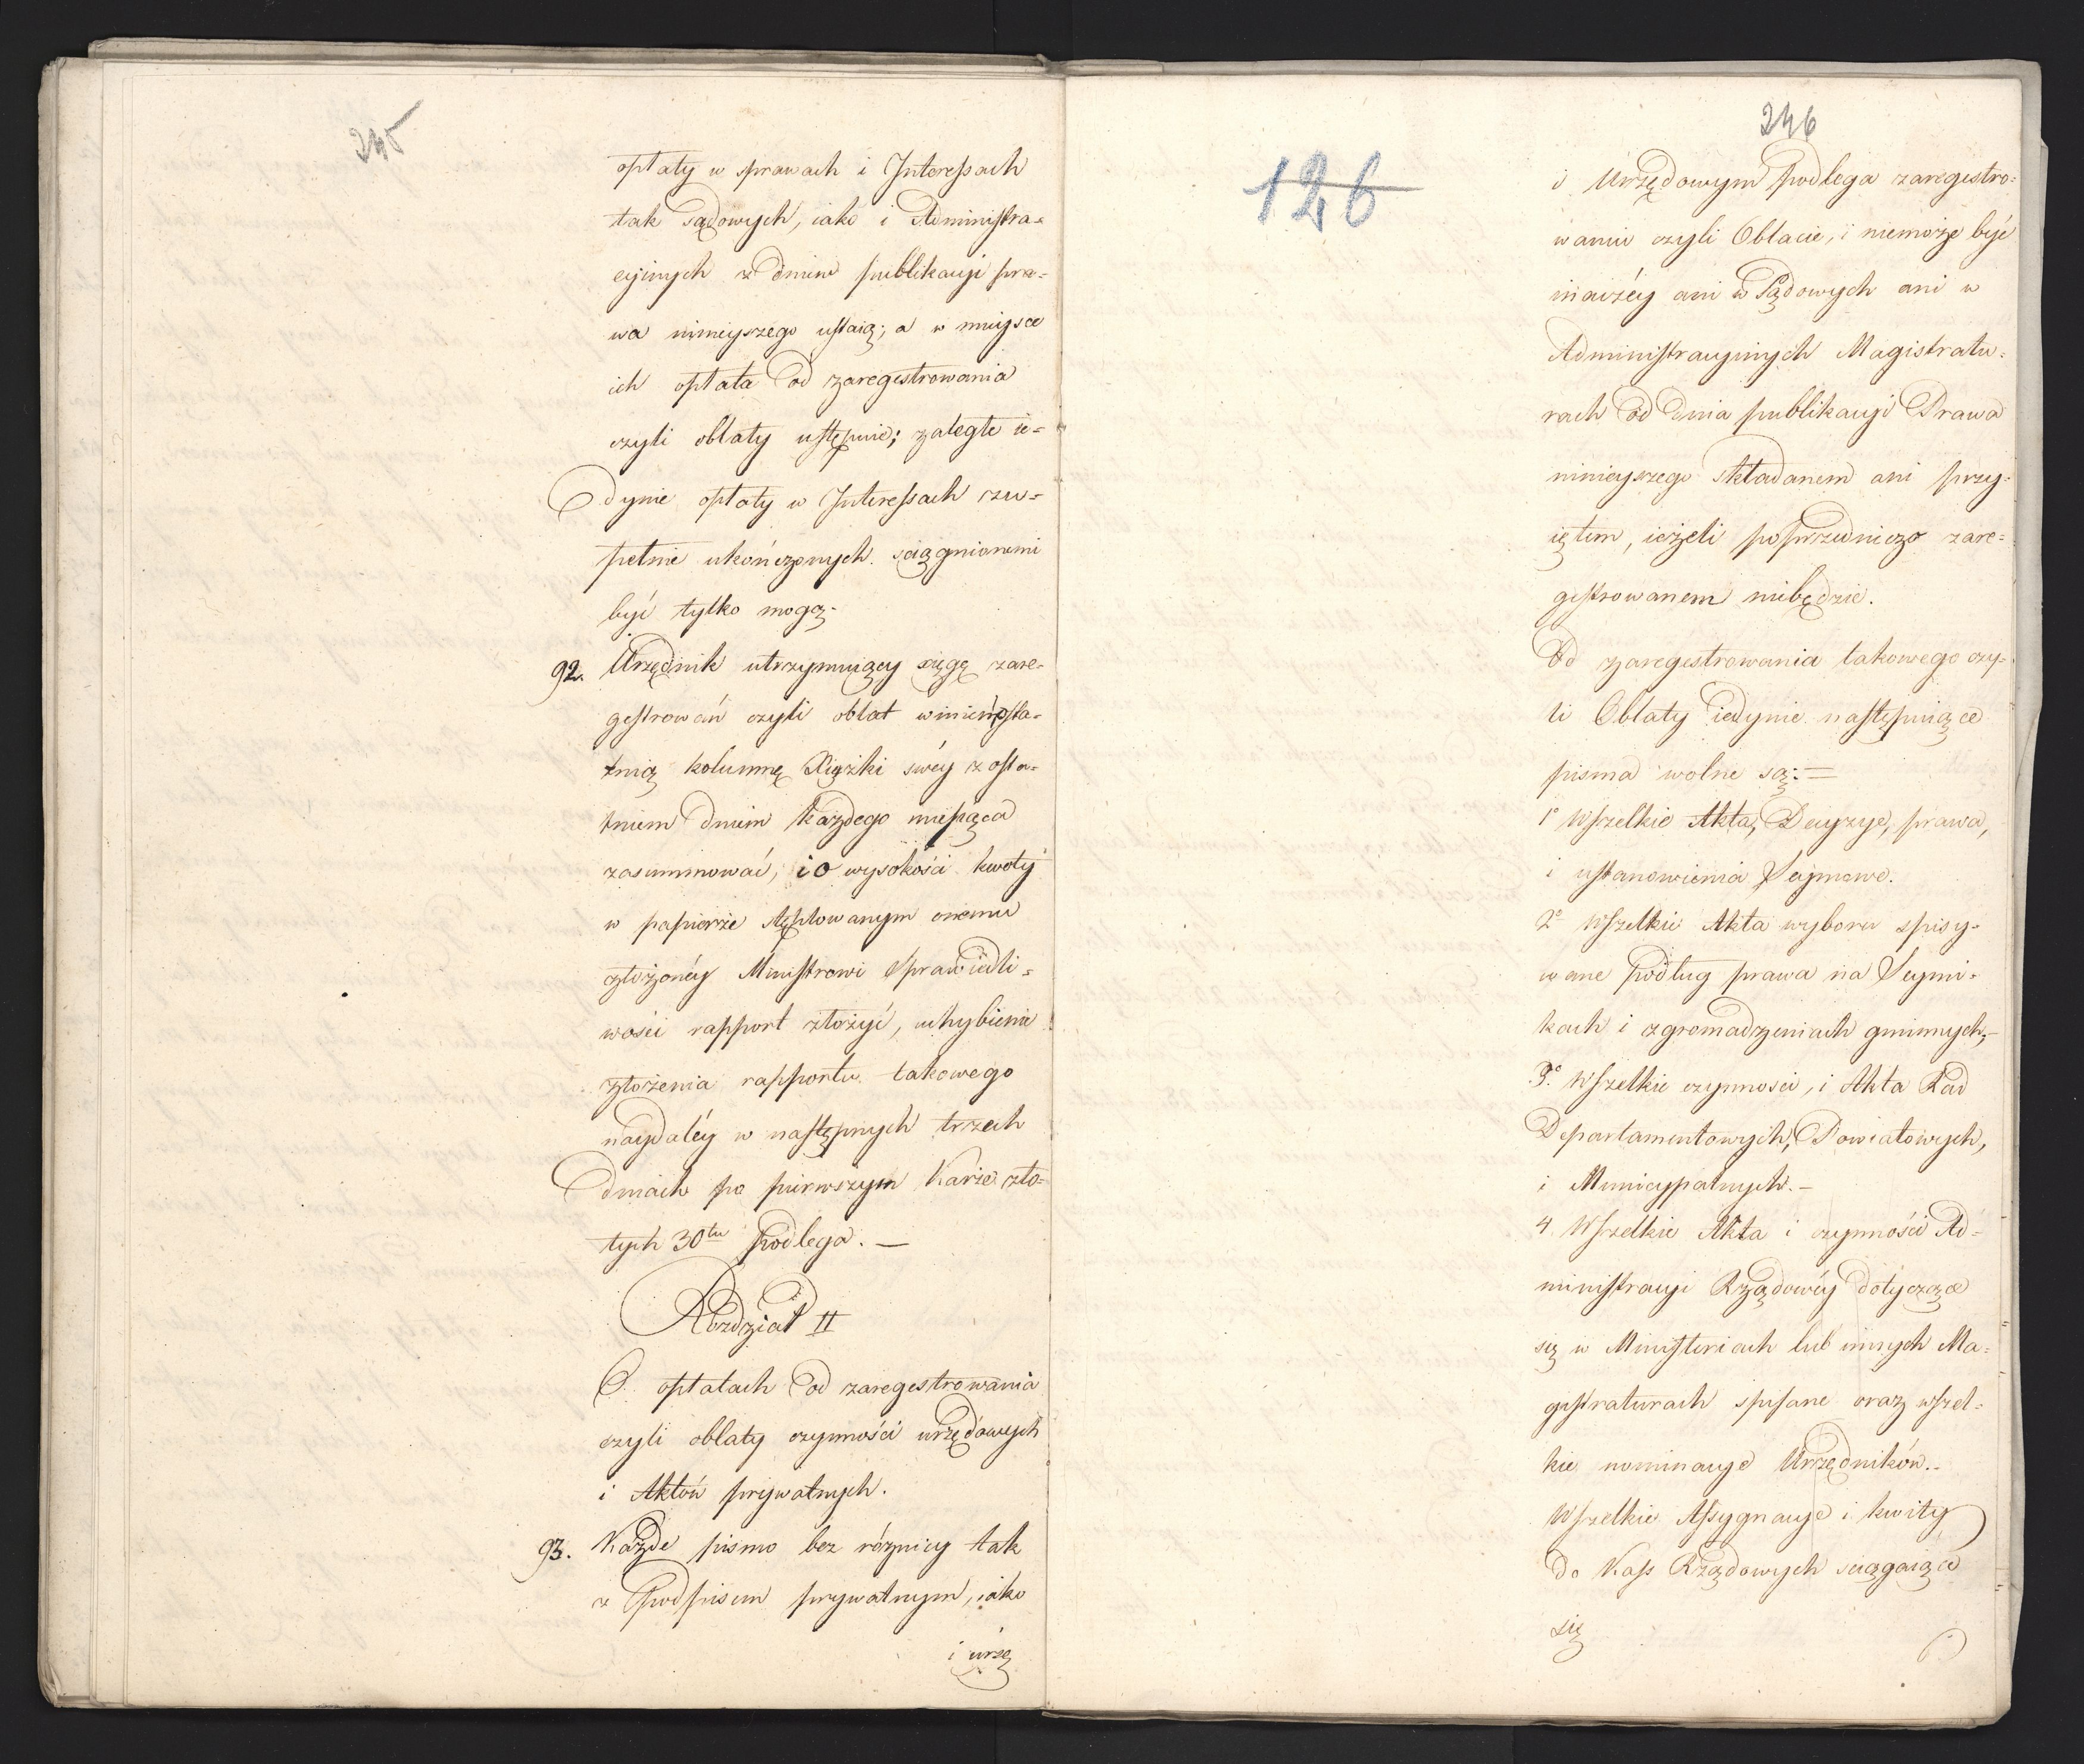 245
opłaty w sprawach i Interessach
tak sądowych, iako i Administra=
cyinych z dniem publikacyi pra=
wa ninieyszego ustaią; a w mieysce
ich opłata od zaregestrowania
czyli oblaty ustępuie; zaległe ie=
dynie opłaty w Interessach zu=
pełnie ukończonych ściągnionemi
być tylko mogą.
92. Urzędnik utrzymuiący xięgę zare=
gestrowań czyli oblat winien osta=
tnią kolumnę Xiążki swéy z osta=
tniem dniem każdego miesiąca
zasummować, i o wysokości kwoty
w papierze stęplowanym onemu
złożonéy Ministrowi Sprawiedli=
wości rapport złożyć, uchybienie
złożenia rapportu takowego
naydaléy w następnych trzech
dniach po pierwszym Karze zło=
tych 30tu podlega. —
Rozdział II
O opłatach od zaregestrowania
czyli oblaty czynności urzędowych
i Aktów prywatnych.
93. Każde pismo bez różnicy tak
z podpisem prywatnym, iako
i urzę
246
126
i Urzędowym podlega zaregestro=
waniu czyli Oblacie, i niemoże być
inaczéy ani w Sądowych ani w
Administracyinych Magistratu=
rach od dnia publikacyi Prawa
ninieyszego składanem ani przy=
iętem, ieżeli poprzedniczo zare=
gestrowanem niebędzie.
Od zaregestrowania takowego czy=
li Oblaty iedynie następuiące
pisma wolne są: =
1º Wszelkie Akta, Decyzye, prawa,
i ustanowienia Seymowe.
2º Wszelkie Akta wyboru spisy=
wane podług prawa na Seymi=
kach i zgromadzeniach gminnych, —
3º Wszelkie czynności, i Akta Rad
Departamentowych, Powiatowych,
i Municypalnych. —
4. Wszelkie Akta i czynności Ad=
ministracyi Rządowéy dotyczące
się w Ministeriach lub innych Ma=
gistraturach spisane oraz wszel=
kie nominacye Urzędników..
Wszelkie Assygnacye i kwity
do Kass Rządowych sciągaiące
się